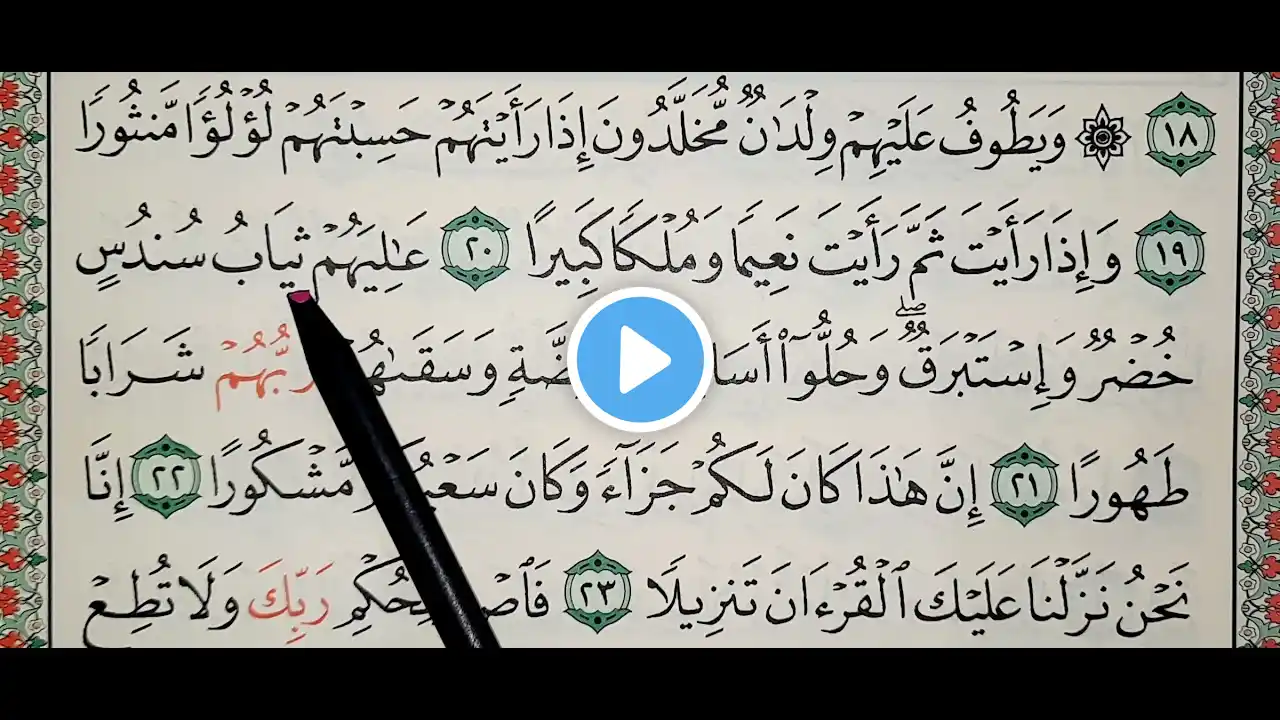 ١٨ ۞ وَيَطُوفُ عَلَيْهِمْ وِلْدَٰنٌ مُّخَلَّدُونَ إِذَا رَأَيْتَهُمْ حَسِبْتَهُمْ لُؤْلُؤًا مَّنثُورًا
١٩ وَإِذَا رَأَيْتَ ثَمَّ رَأَيْتَ نَعِيمًا وَمُلْكًا كَبِيرًا ٢٠ عَٰلِيَهُمْ ثِيَابُ سُندُسٍ
خُضْرٌ وَإِسْتَبْرَقٌۖ وَحُلُّوٓا۟ وَسَقَىٰهُمْ رَبُّهُمْ شَرَابًا
طَهُورًا ٢١ إِنَّ هَٰذَا كَانَ لَكُمْ جَزَآءً وَكَانَ مَّشْكُورًا ٢٢ إِنَّا
نَحْنُ نَزَّلْنَا عَلَيْكَ ٱلْقُرْءَانَ تَنزِيلًا ٢٣ رَبِّكَ وَلَا تُطِعْ